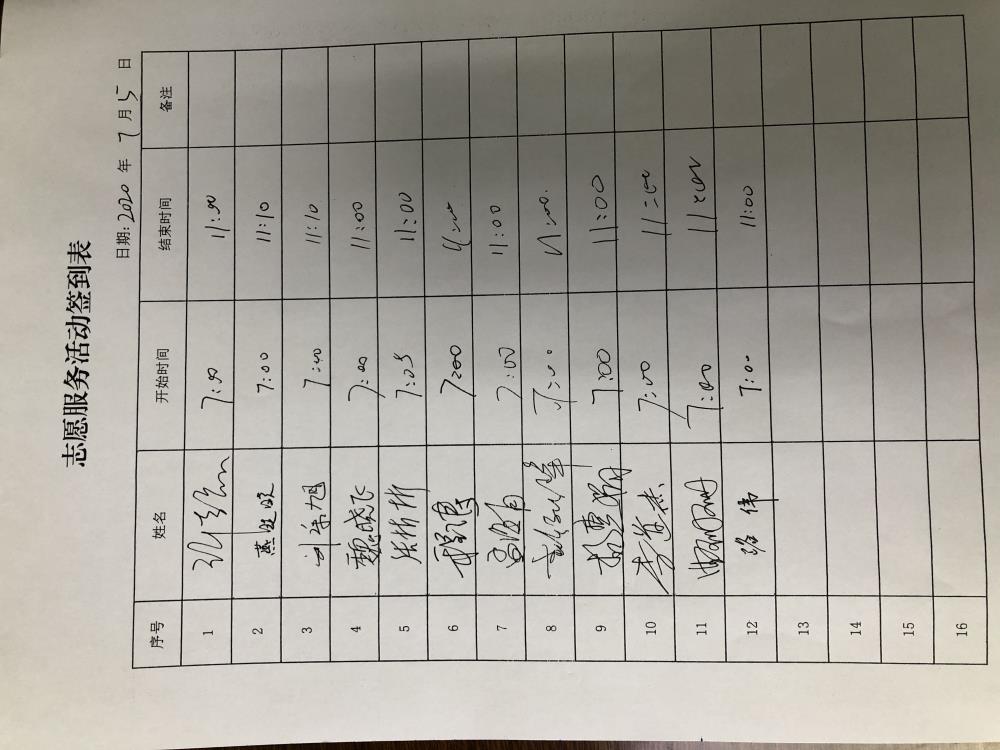 志愿服务活动签到表
日期: 2020 年 7 月 5 日
序号 姓名 开始时间 结束时间 备注
1 7:00 11:00
2 7:00 11:10
3 7:00 11:10
4 魏晓飞 7:00 11:00
5 7:05 11:00
6 7:00 11:00
7 7:00 11:00
8 7:00 11:00
9 7:00 11:00
10 7:00 11:00
11 7:00 11:00
12 路伟 7:00 11:00
13
14
15
16